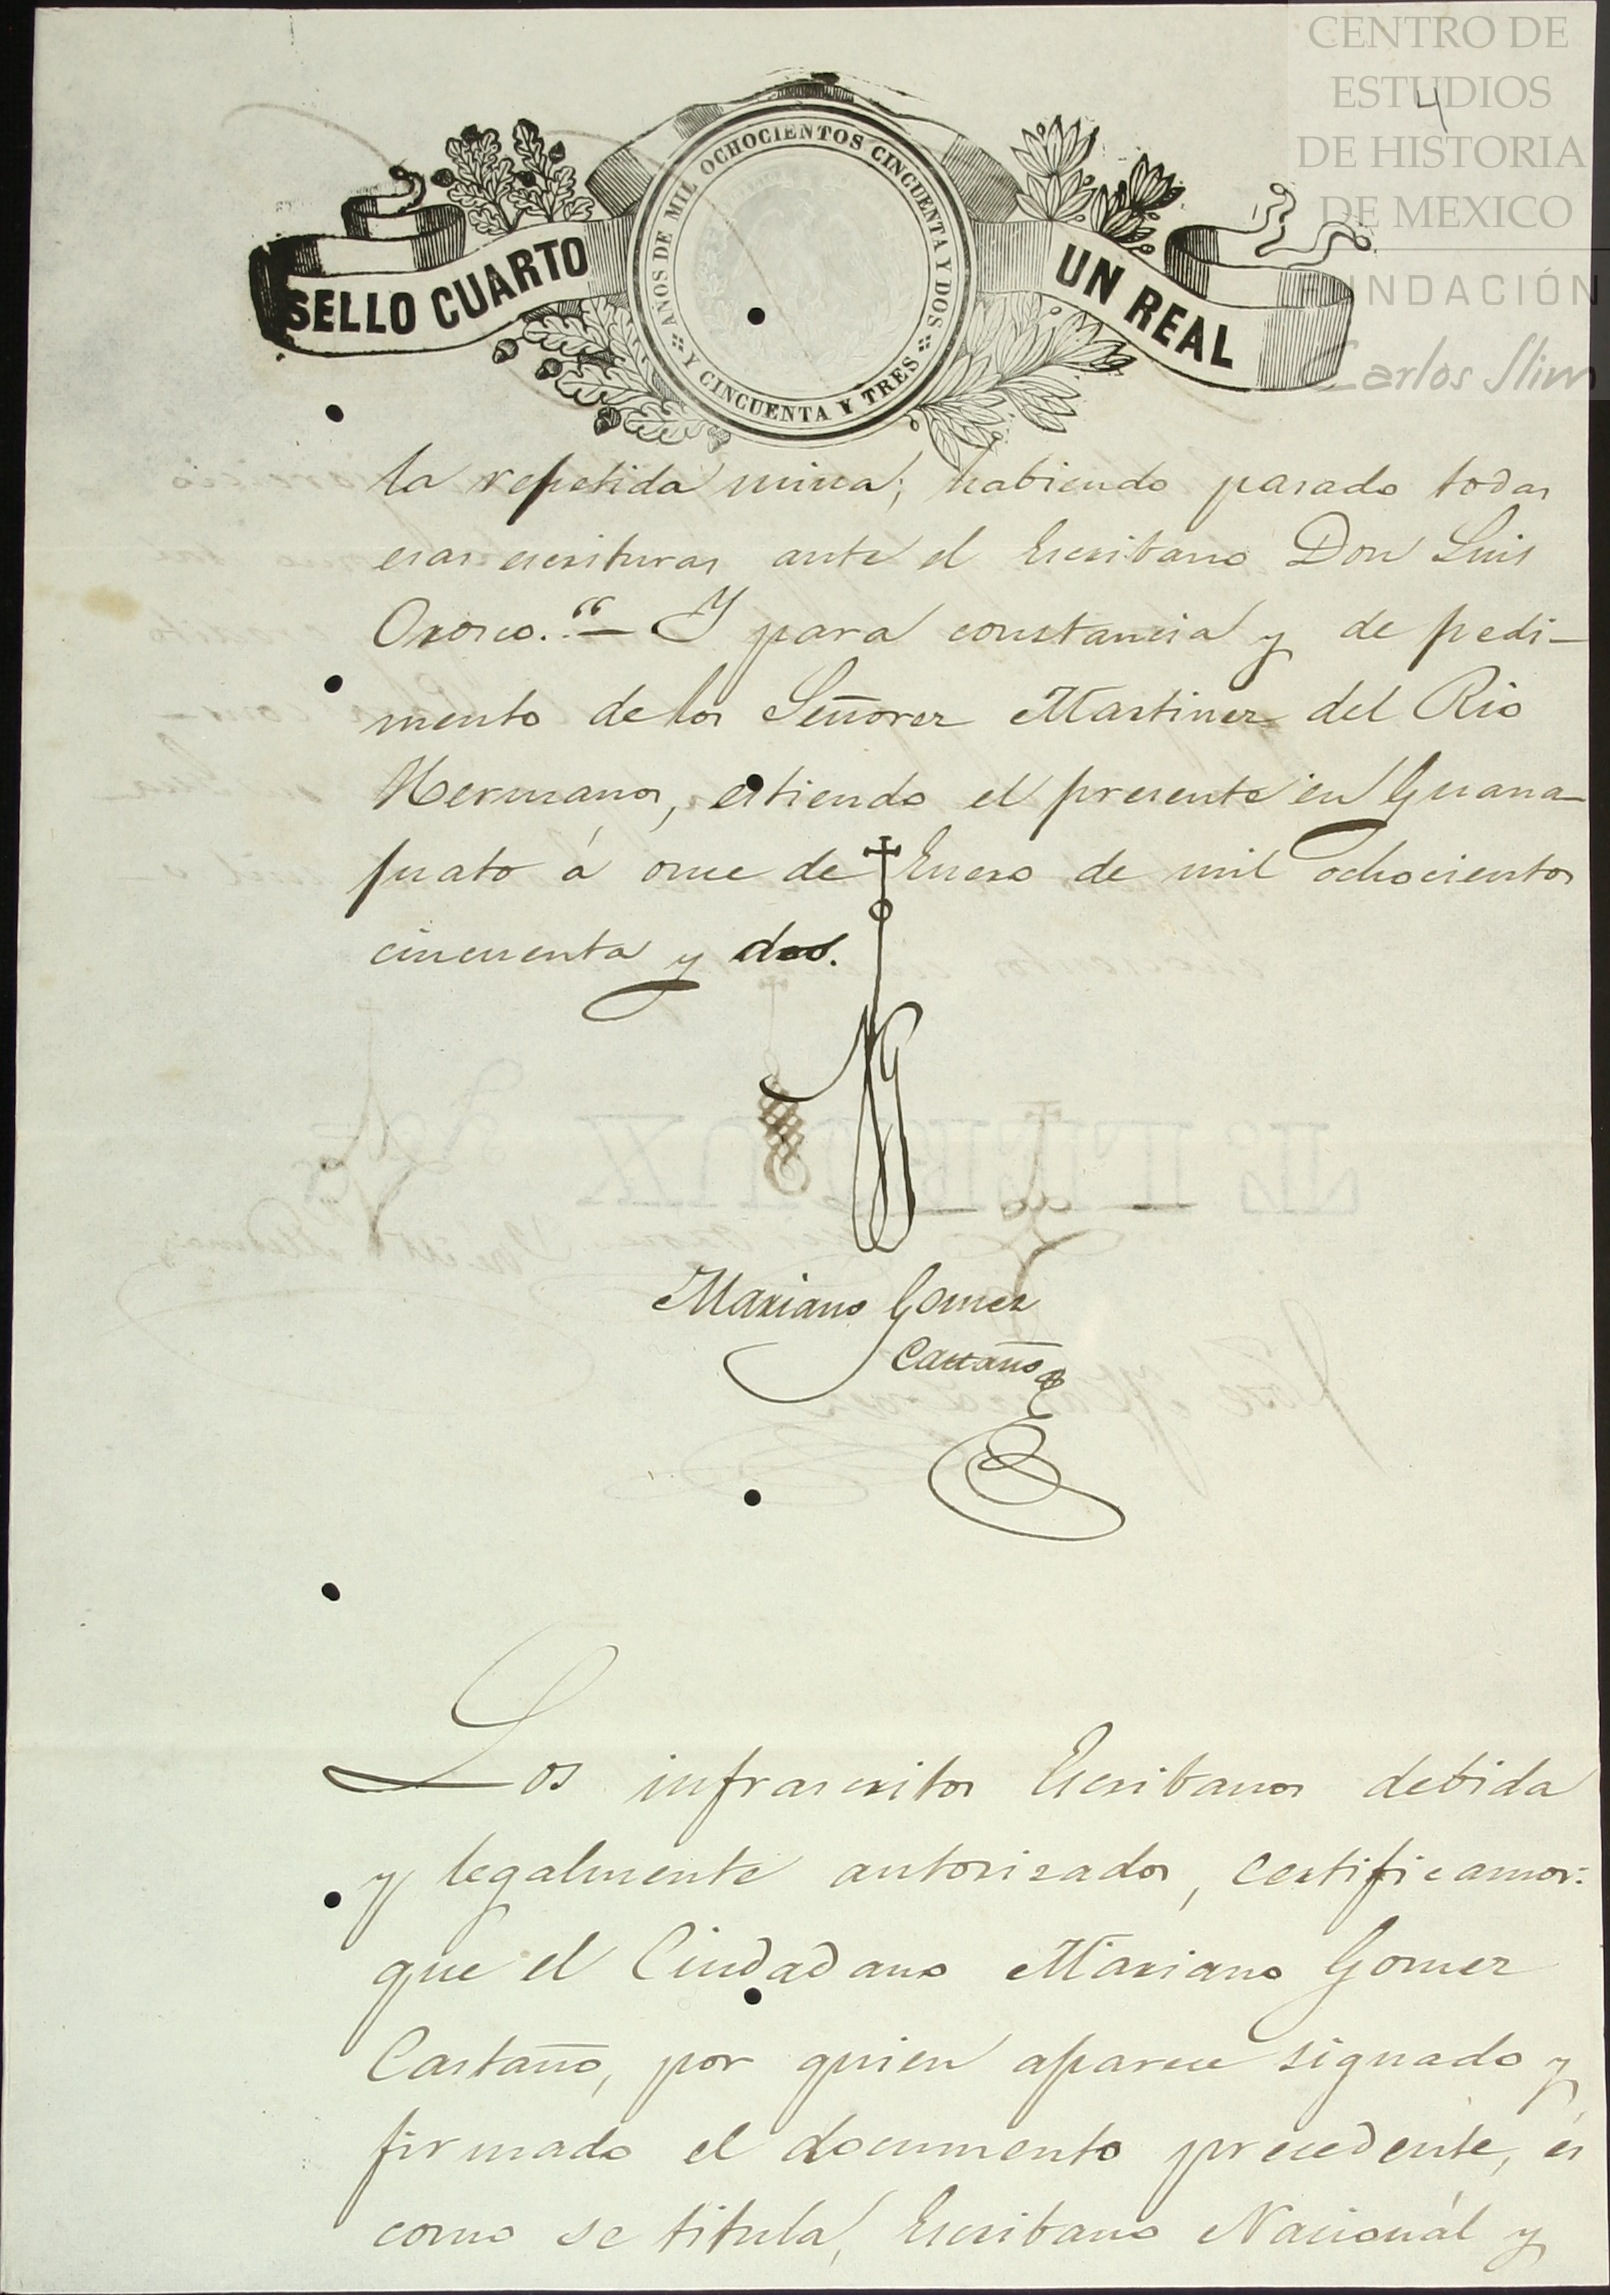 CENTRO DE
ESTUDIOS
DE HISTORIA
DE MEXICO
FUNDACIÓN
Carlos Slim
4
SELLO CUARTO
AÑOS DE MIL OCHOCIENTOS CINCUENTA Y DOS
Y CINCUENTA Y TRES
UN REAL
la repetida mina; habiendo pasado todas
esas escrituras ante el Escribano Don Luis
Oxorco."— Y para constancia y de pedi-
mento de los Señores Martinez del Rio
Hermanos, estiendo el presente en Guana-
juato á once de Enero de mil ochocientos
cincuenta y dos.
Mariano Gomez
Castaño
Los infrascritos Escribanos debida
y legalmente autorizados, certificamos:
que el Ciudadano Mariano Gomez
Castaño, por quien aparece signado y
firmado el documento precedente, es
como se titula, Escribano Nacionál y